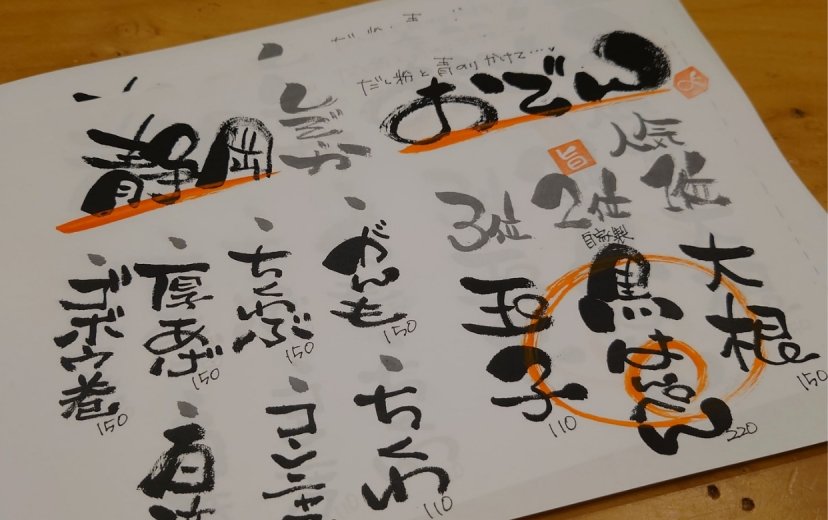 だし粉と青のりかけて…♥
おでん
しぞーか
静岡
人気
1位
大根
150
2位
旨
自家製
黒はんぺん
220
3位
玉子
110
・がんも
150
・ちくわ
110
・ちくわぶ
150
・コンニャ
・厚あげ
150
・ゴボウ巻
150